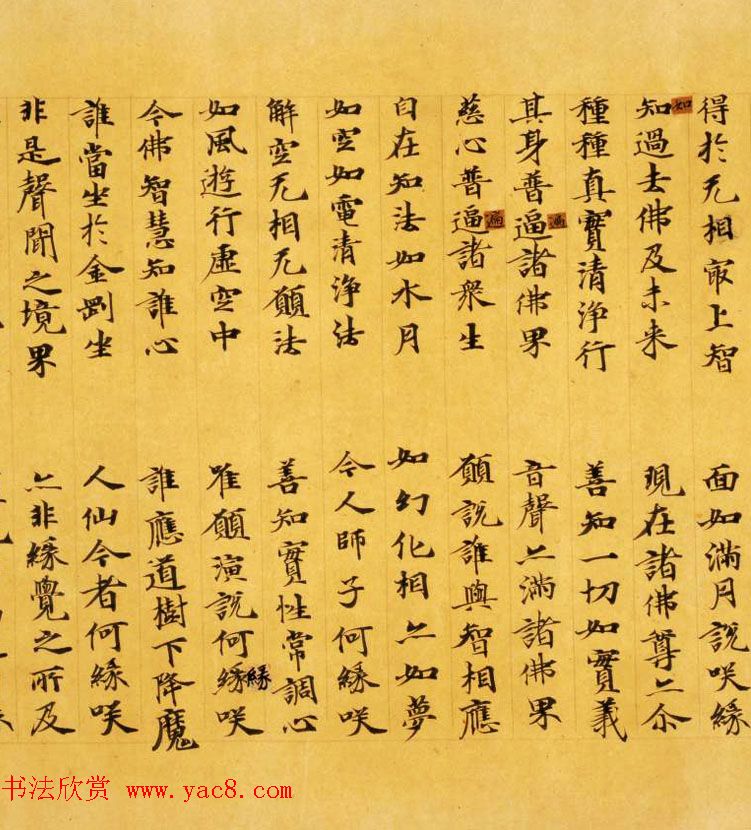 得於无相㝡上智　面如滿月說咲緣
知如過去佛及未来　現在諸佛尊亦尒
種種真實清淨行　善知一切如實義
其身普逼遍諸佛果　音聲亦滿諸佛果
慈心普逼遍諸衆生　願說誰與智相應
自在知法如水月　如幻化相亦如夢
如空如電清淨法　今人師子何緣咲
解空无相无願法　善知實性常調心
如風遊行虛空中　唯願演說何緣緣咲
今佛智慧知誰心　誰應道樹下降魔
誰當坐於金剛坐　人仙今者何緣咲
非是聲聞之境果　亦非緣覺之所及
书法欣赏 www.yac8.com